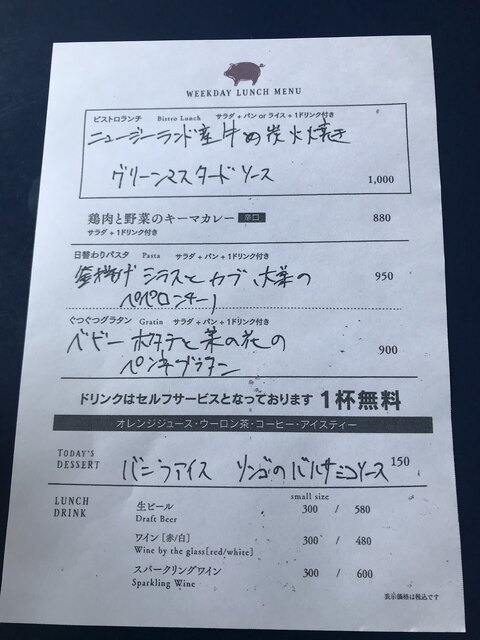 WEEKDAY LUNCH MENU
ビストロランチ Bistro Lunch サラダ + パン or ライス + 1ドリンク付き
ニュージーランド産牛の炭火焼き
グリーンマスタードソース 1,000
鶏肉と野菜のキーマカレー 辛口 880
サラダ + 1ドリンク付き
日替わりパスタ Pasta サラダ + パン + 1ドリンク付き
釜揚げシラスとカブ、大葉の 950
ペペロンチーノ
ぐつぐつグラタン Gratin サラダ + パン + 1ドリンク付き
ベビーホタテと菜の花の 900
ペンネグラタン
ドリンクはセルフサービスとなっております 1杯無料
オレンジジュース・ウーロン茶・コーヒー・アイスティー
TODAY'S DESSERT バニラアイス リンゴのバルサミコソース 150
LUNCH DRINK
small size
生ビール 300 / 580
Draft Beer
ワイン [赤/白] 300 / 480
Wine by the glass[red/white]
スパークリングワイン 300 / 600
Sparkling Wine
表示価格は税込です